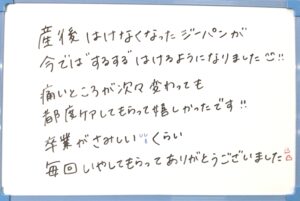 産後はけなくなったジーパンが
今では"するする"はけるようになりました!!
痛いところが次々変わっても
都度ケアしてもらって嬉しかったです!!
卒業がさみしいくらい
毎回いやしてもらってありがとうございました